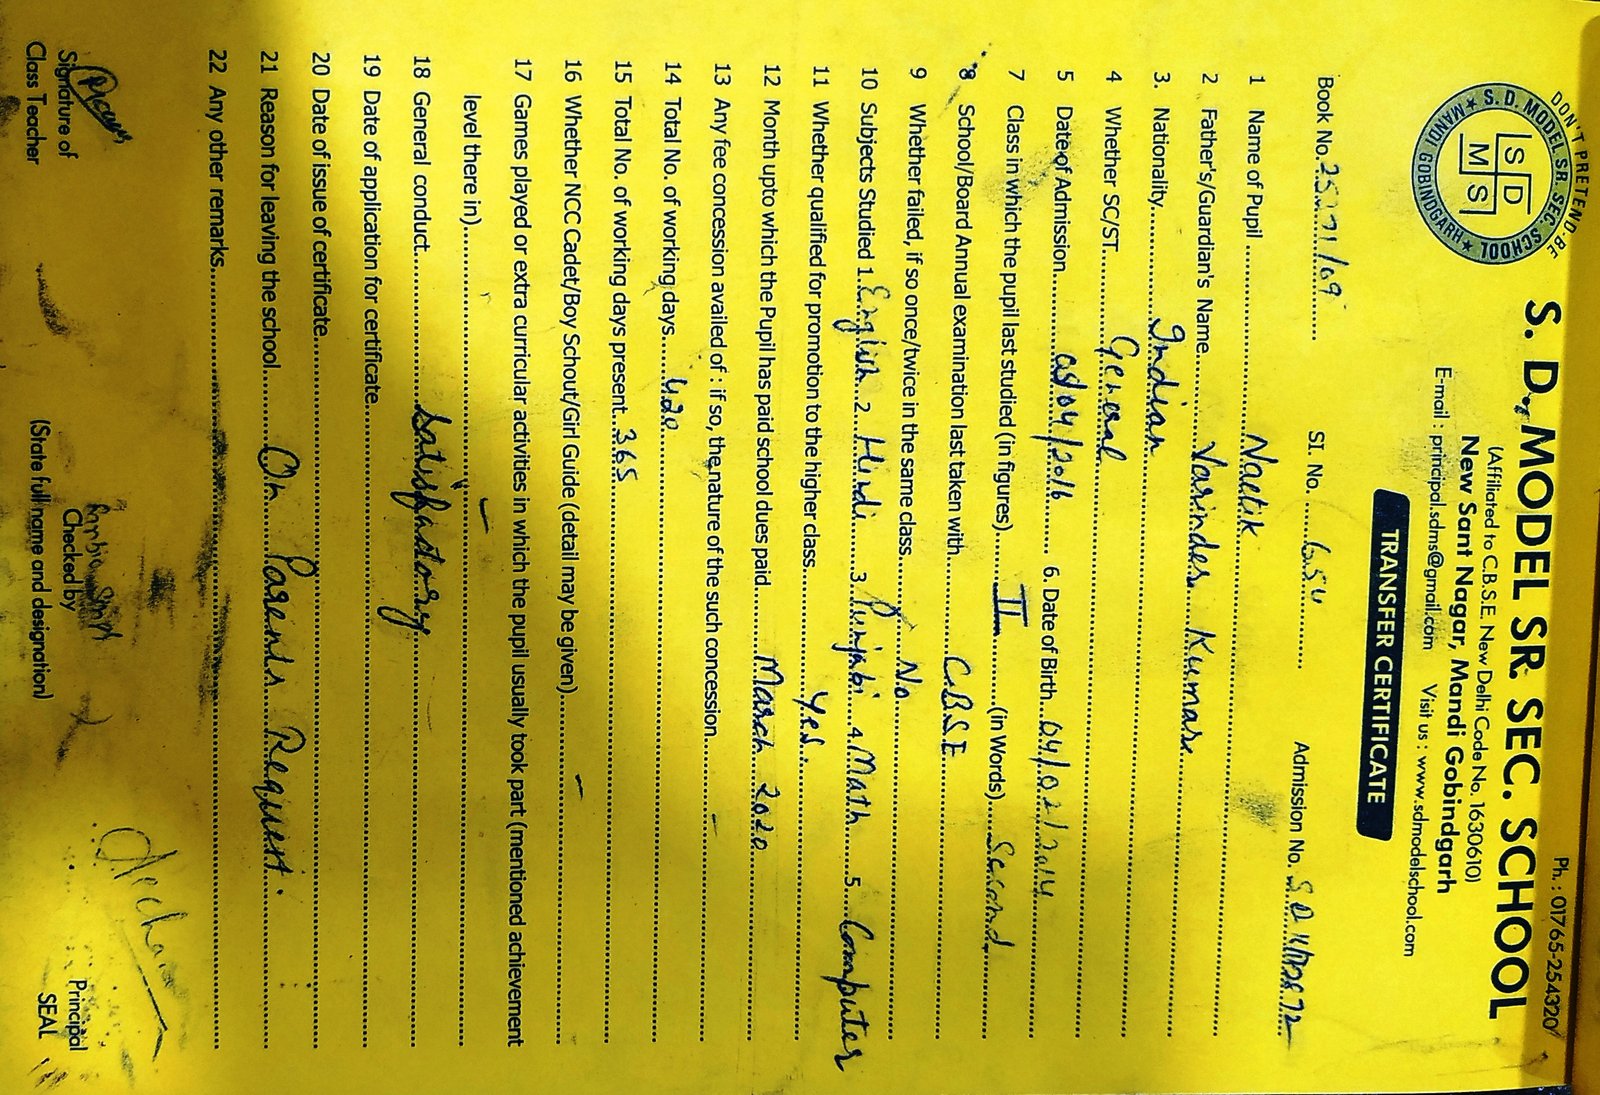 DON'T PRETEND-BE
S. D. MODEL SR. SEC. SCHOOL
MANDI GOBINDGARH
S D
M S
Ph. : 01765-254320
S. D. MODEL SR SEC. SCHOOL
(Affiliated to C.B.S.E. New Delhi Code No. 1630610)
New Sant Nagar, Mandi Gobindgarh
E-mail : principal.sdms@gmail.com Visit us : www.sdmodelschool.com
TRANSFER CERTIFICATE
Book No. Sl. No. 654 Admission No.
1 Name of Pupil Naitik
2 Father's/Guardian's Name Varinder Kumar
3. Nationality Indian
4 Whether SC/ST General
5 Date of Admission 05/04/2016 6. Date of Birth 04/02/2014
7 Class in which the pupil last studied (in figures) II (in Words) Second
8 School/Board Annual examination last taken with C.B.S.E
9 Whether failed, if so once/twice in the same class No
10 Subjects Studied 1. English 2. Hindi 3. Punjabi 4. Math 5. Computer
11 Whether qualified for promotion to the higher class Yes.
12 Month upto which the Pupil has paid school dues paid March 2020
13 Any fee concession availed of : if so, the nature of the such concession -
14 Total No. of working days 420
15 Total No. of working days present 365
16 Whether NCC Cadet/Boy Schout/Girl Guide (detail may be given) -
17 Games played or extra curricular activities in which the pupil usually took part (mentioned achievement
level there in) -
18 General conduct Satisfactory
19 Date of application for certificate
20 Date of issue of certificate
21 Reason for leaving the school On Parents Request.
22 Any other remarks
Signature of
Class Teacher
Checked by
(State full name and designation)
Principal
SEAL